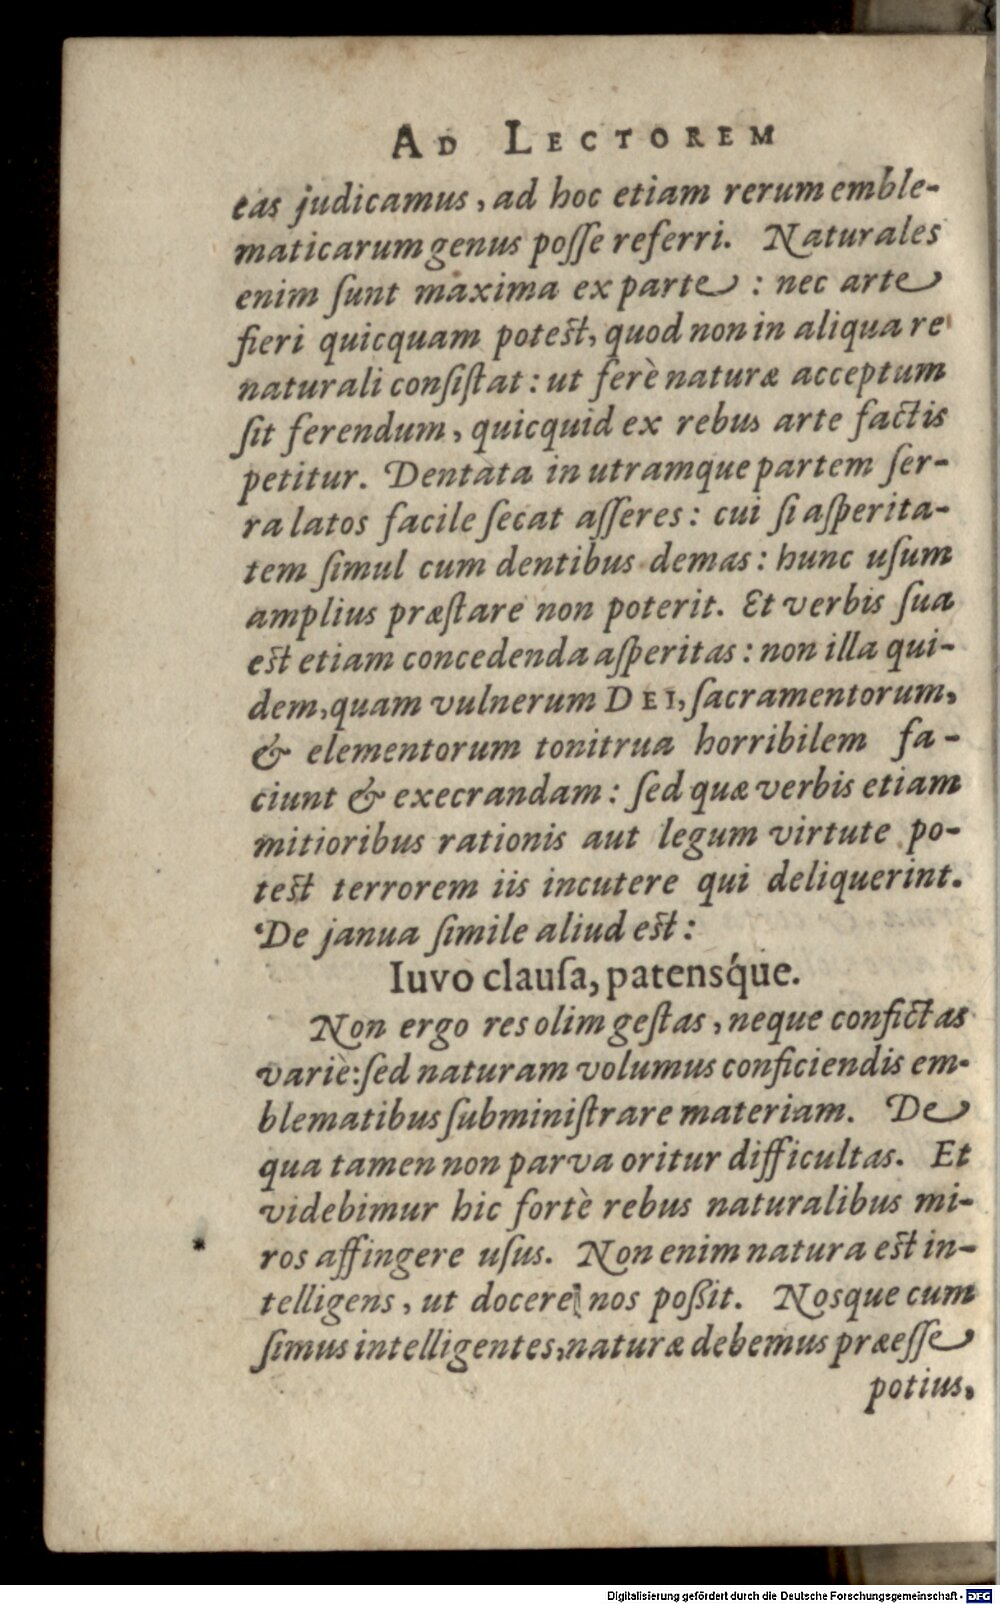 AD LECTOREM
eas judicamus, ad hoc etiam rerum emble-
maticarum genus poſſe referri. Naturales
enim ſunt maxima ex parte : nec arte
fieri quicquam poteſt, quod non in aliqua re
naturali conſiſtat : ut ferè naturæ acceptum
ſit ferendum, quicquid ex rebus arte factis
petitur. Dentata in utramque partem ſer-
ra latos facile ſecat aſſeres : cui ſi aſperita-
tem ſimul cum dentibus demas : hunc uſum
amplius præſtare non poterit. Et verbis ſua
eſt etiam concedenda aſperitas : non illa qui-
dem, quam vulnerum DEI, ſacramentorum,
& elementorum tonitrua horribilem fa-
ciunt & execrandam : ſed quæ verbis etiam
mitioribus rationis aut legum virtute po-
teſt terrorem iis incutere qui deliquerint.
De janua ſimile aliud eſt :
Iuvo clauſa, patensq́ue.
Non ergo res olim geſtas, neque confictas
variè: ſed naturam volumus conficiendis em-
blematibus ſubminiſtrare materiam. De
qua tamen non parva oritur difficultas. Et
videbimur hic fortè rebus naturalibus mi-
ros affingere uſus. Non enim natura eſt in-
telligens, ut docere nos poßit. Nosque cum
ſimus intelligentes, naturæ debemus præeſſe
potius,
Digitalisierung gefördert durch die Deutsche Forschungsgemeinschaft - DFG